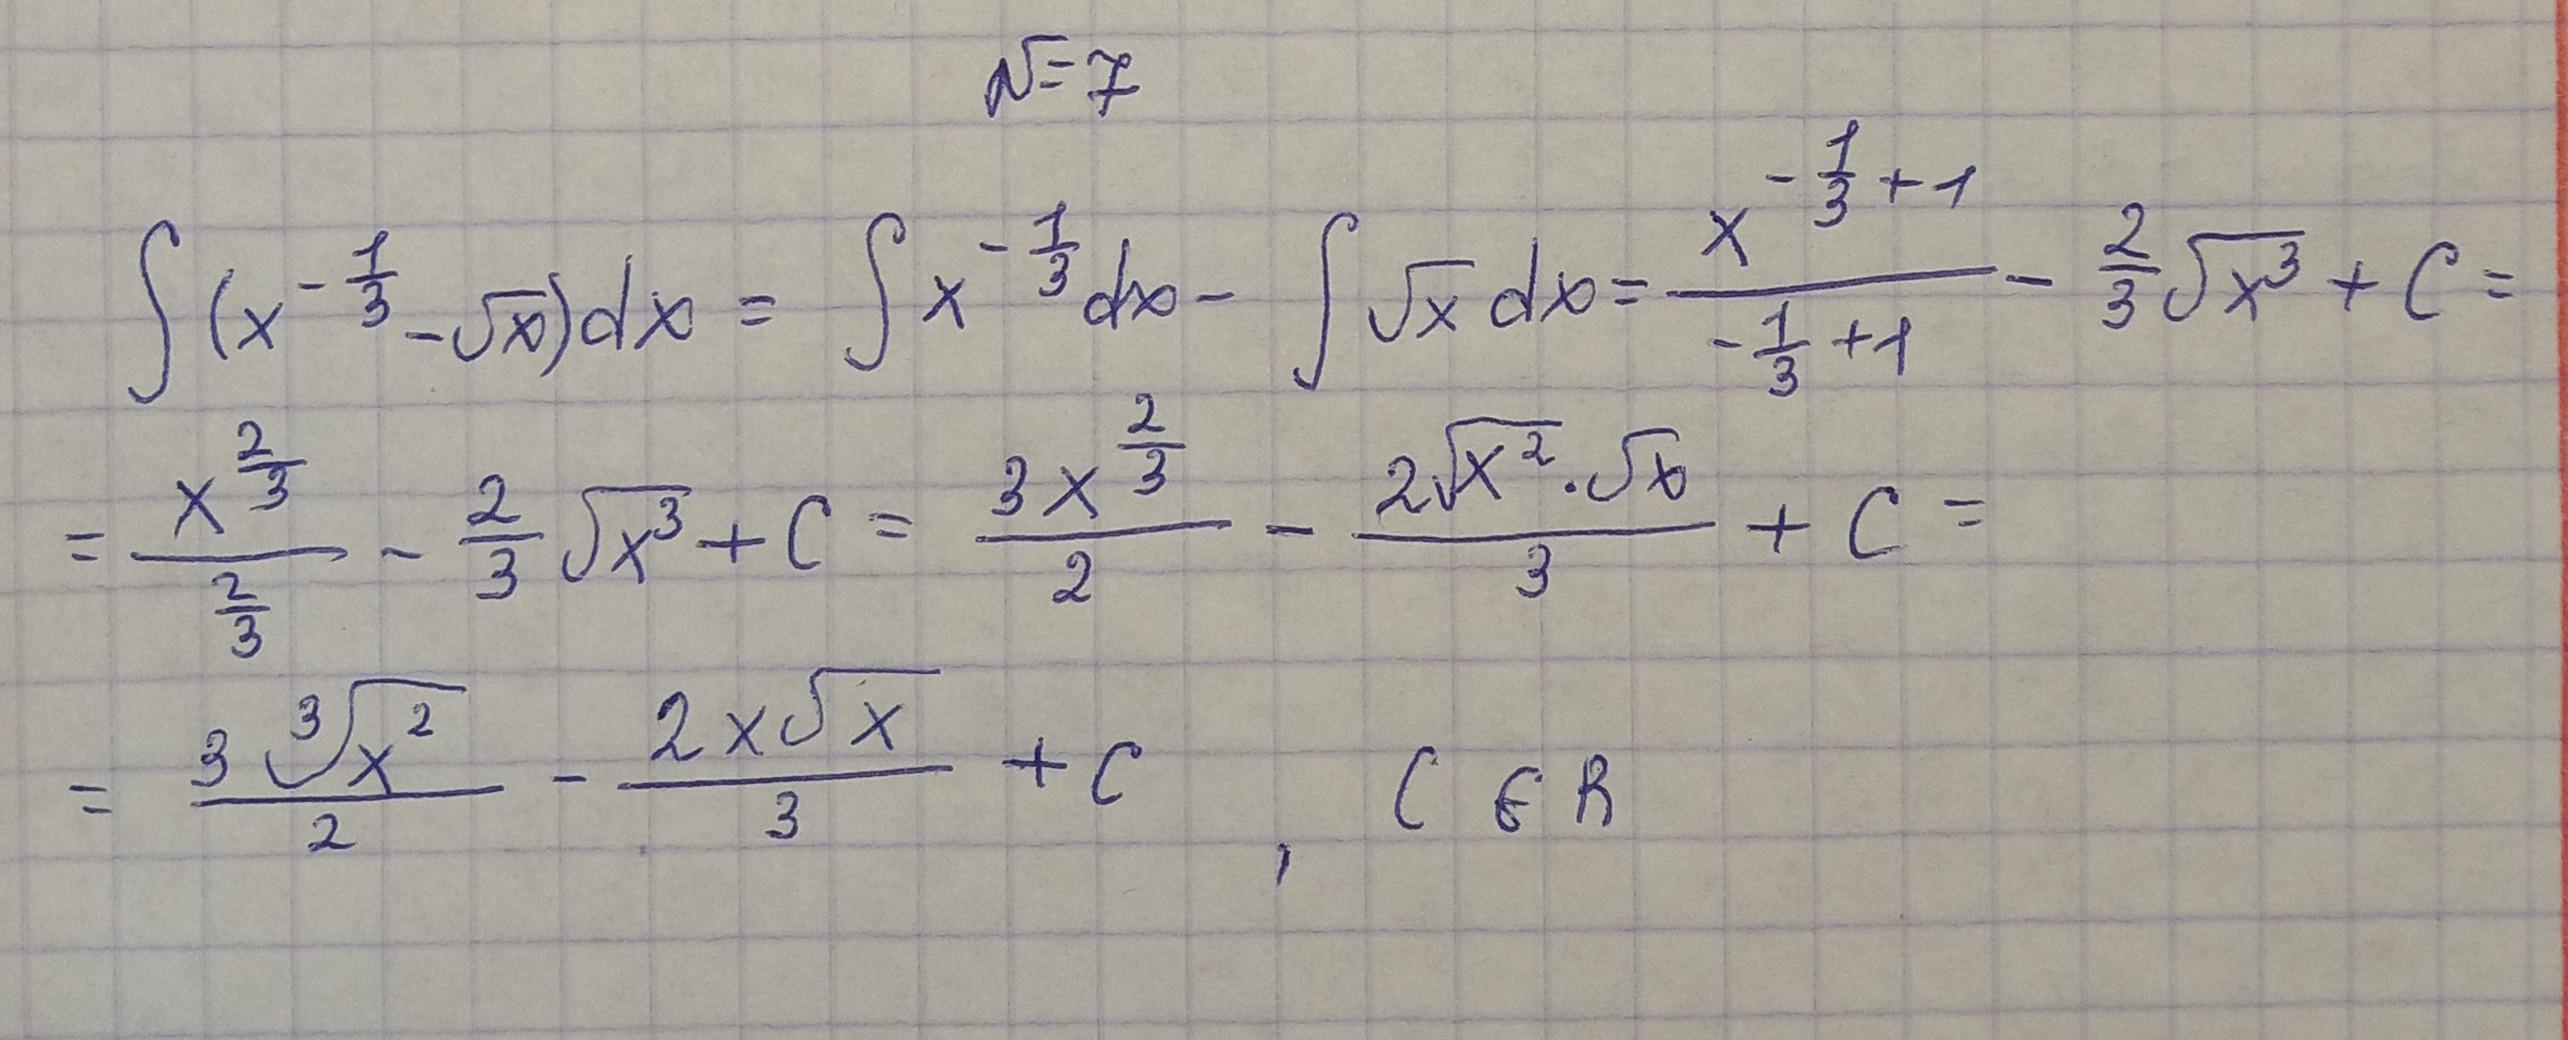 № 7
∫(x^{-1/3} - √x)dx = ∫x^{-1/3}dx - ∫√x dx = \frac{x^{-1/3+1}}{-1/3+1} - \frac{2}{3}√(x^3) + C =
= \frac{x^{2/3}}{2/3} - \frac{2}{3}√(x^3) + C = \frac{3x^{2/3}}{2} - \frac{2√(x^2)·√x}{3} + C =
= \frac{3∛(x^2)}{2} - \frac{2x√x}{3} + C , C ∈ R